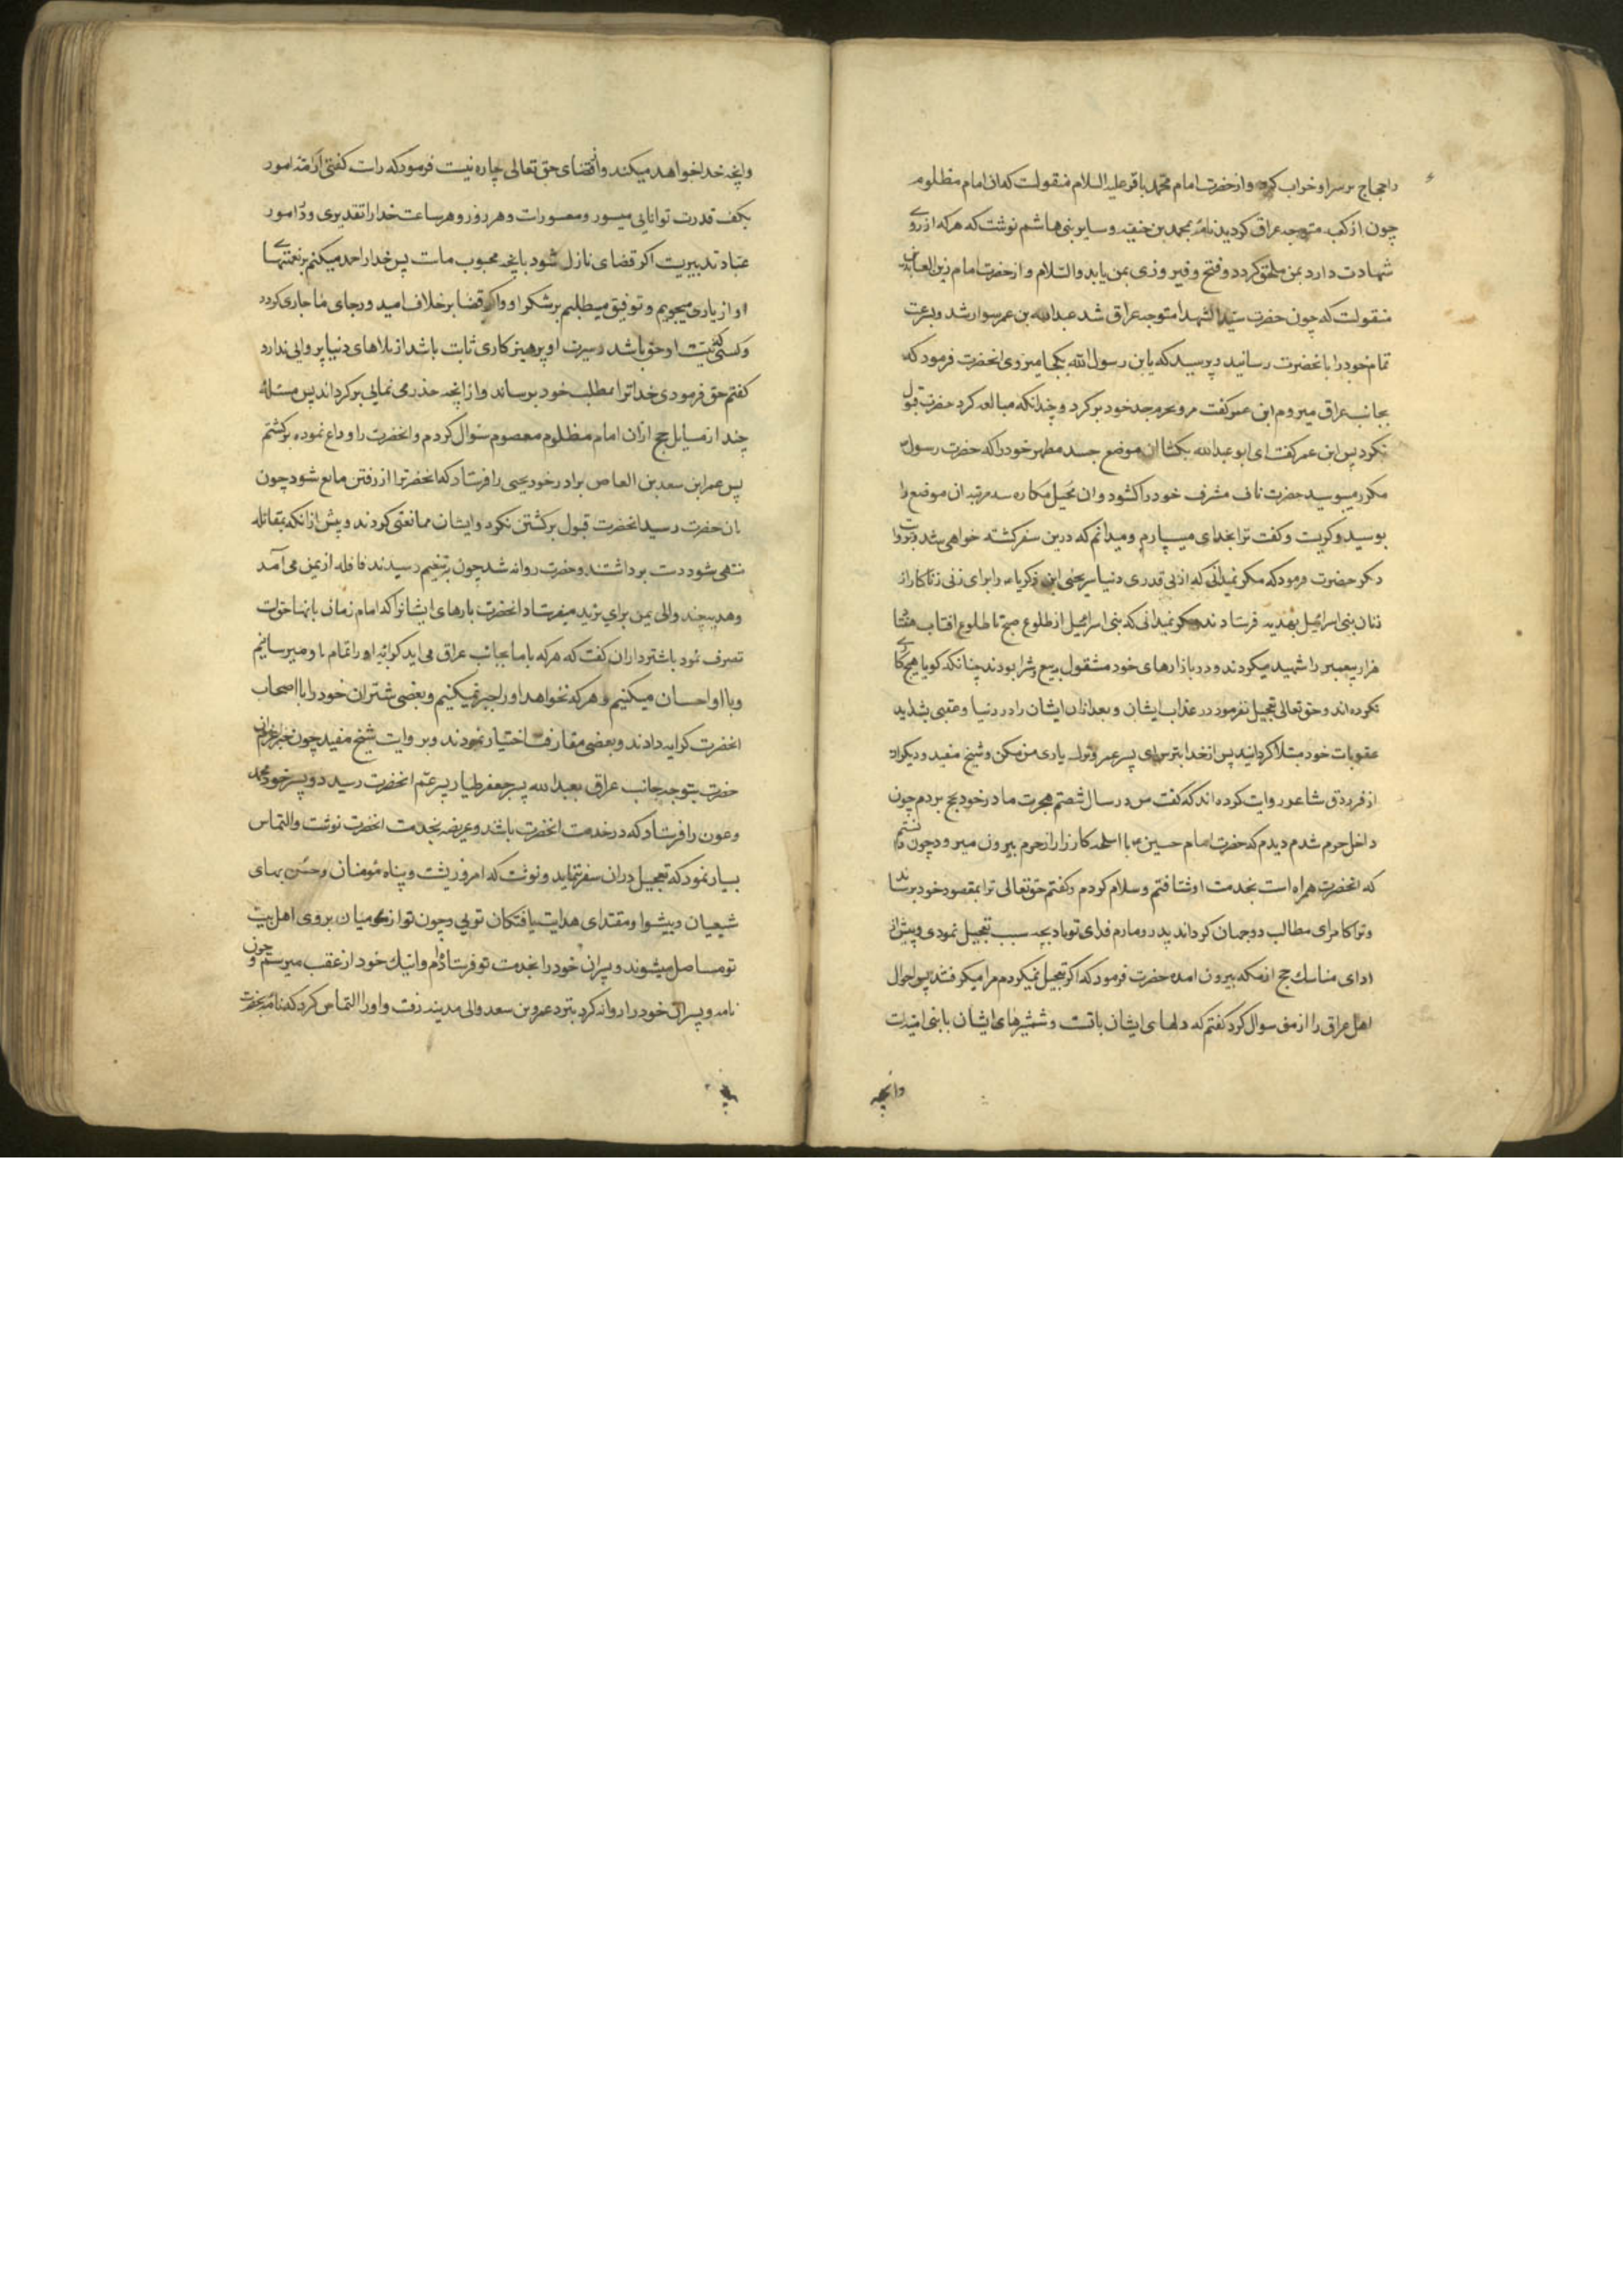 را حجاج بر سر او خراب کرد و از حضرت امام محمد باقر علیه السلام منقولست که ان امام مظلوم
چون از کعبه متوجه عراق کردید نامۀ بمحمد بن حنفیه و سایر بنی هاشم نوشت که هر که ارزوی
شهادت دارد بمن ملحق کردد و فتح و فیروزی بمن یابد والسلام و از حضرت امام زین العابدین
منقولست که چون حضرت سید الشهدا متوجه عراق شد عبدالله بن عمر سوار شد و بسرعت
تمام خود را بانحضرت رسانید و پرسید که یابن رسول الله بکجا میروی انحضرت فرمود که
بجانب عراق میروم ابن عمر کفت مرو بحرم جد خود برکرد و چندانکه مبالغه کرد حضرت قبول
نکرد پس ابن عمر کفت ای ابو عبدالله بکشا ان موضع جسد مطهر خود را که حضرت رسول
مکرر میبوسید حضرت ناف مشرف خود را کشود و ان محیل مکاره سه مرتبه ان موضع را
بوسید و کریست و کفت ترا بخدای میسپارم و میدانم که درین سفر کشته خواهی شد و بروایت
دیکر حضرت فرمود که مکر نمیدانی که از بی قدری دنیا سر یحیی ابن زکریا را برای زنی زناکار از
زنان بنی اسرائیل بهدیه فرستادند مکر نمیدانی که بنی اسرائیل از طلوع صبح تا طلوع افتاب هفتا
هزار پیغمبر را شهید میکردند و در بازارهای خود مشغول ببیع و شرا بودند چنانکه کویا هیچ کاری
نکرده اند و حق تعالی تعجیل نفرمود در عذاب ایشان و بعد ازان ایشان را در دنیا و عقبی بشداید
عقوبات خود مبتلا کردانید پس از خدا بترس ای پسر عمر و ترک یاری من مکن و شیخ مفید و دیکران
از فرزدق شاعر روایت کرده اند که کفت من در سال شصتم هجرت مادر خود بحج بردم چون
داخل حرم شدم دیدم که حضرت امام حسین با اسلحه کارزار از حرم بیرون میرود چون دانستم
که انحضرت همراه است بخدمت او شتافتم و سلام کردم و کفتم حق تعالی ترا بمقصود خود برساند
و ترا کامرای مطالب دو جهان کرداند پدر و مادرم فدای تو باد بچه سبب تعجیل نمودی و پیش از
ادای مناسك حج از مکه بیرون امده حضرت فرمود که اکر تعجیل نمیکردم مرا میکرفتند پس احوال
اهل عراق را از من سوال کرد کفتم که دلهای ایشان باتست و شمشیرهای ایشان با بنی امیه است
وانچه
وانچه خدا خواهد میکند و از قضای حق تعالی چاره نیست فرمود که راست کفتی ازمنه امور
بکف قدرت توانایی میسور و معسورات و هر روز و هر ساعت خدا را تقدیری و در امور
عباد تدبیریست اکر قضای نازل شود بانچه محبوب ماست پس خدا را حمد میکنم بر نعمتهای
او از یاری میجویم و توفیق میطلبم بر شکر او و اکر قضا بر خلاف امید و رجای ما جاری کردد
و کسی که نیت او حق باشد و سیرت او پرهیزکاری ثابت باشد از بلاهای دنیا پروایی ندارد
کفتم حق فرمودی خدا ترا بمطلب خود برساند و از انچه حذر می نمایی برکرداند پس مسئلۀ
چند از مسایل حج ازان امام مظلوم معصوم سؤال کردم و انحضرت را وداع نموده برکشتم
پس عمر ابن سعد بن العاص برادر خود یحیی را فرستاد که انحضرترا از رفتن مانع شود چون
بان حضرت رسید انحضرت قبول برکشتن نکرد و ایشان ممانعتی کردند و پیش از انکه بمقاتله
منتهی شود دست برداشتند و حضرت روانه شد چون بتنعیم رسیدند قافله از یمن می آمد
و هدیه چند والی یمن برای یزید میفرستاد انحضرت بارهای ایشانرا که امام زمان بانها احق است
تصرف نمود با شترداران کفت که هر که با ما بجانب عراق می اید کرایه او را تمام باو میرسانیم
و با او احسان میکنیم و هر که نخواهد او را جبر نمیکنیم و بعضی شتران خود را با اصحاب
انحضرت کرایه دادند و بعضی مفارقت اختیار نمودند و بروایت شیخ مفید چون خبر عزیمت
حضرت بتوجه جانب عراق بعبد الله پسر جعفر طیار پسر عم انحضرت رسید دو پسر خود محمد
و عون را فرستاد که در خدمت انحضرت باشند و عریضه بخدمت انحضرت نوشت و التماس
بسیار نمود که تعجیل دران سفر ننماید و نوشت که امروز پشت و پناه مؤمنان و حسن بهای
شیعیان و پیشوا و مقتدای هدایت یافتکان تویی و چون تو از میان بروی اهل بیت
تو مستاصل میشوند و پسران خود را بخدمت تو فرستادم و اینك خود از عقب میرسم و چون
نامه و پسران خود را روانه کرد بنزد عمرو بن سعد والی مدینه رفت و او را التماس کرد که نامۀ بحضرت